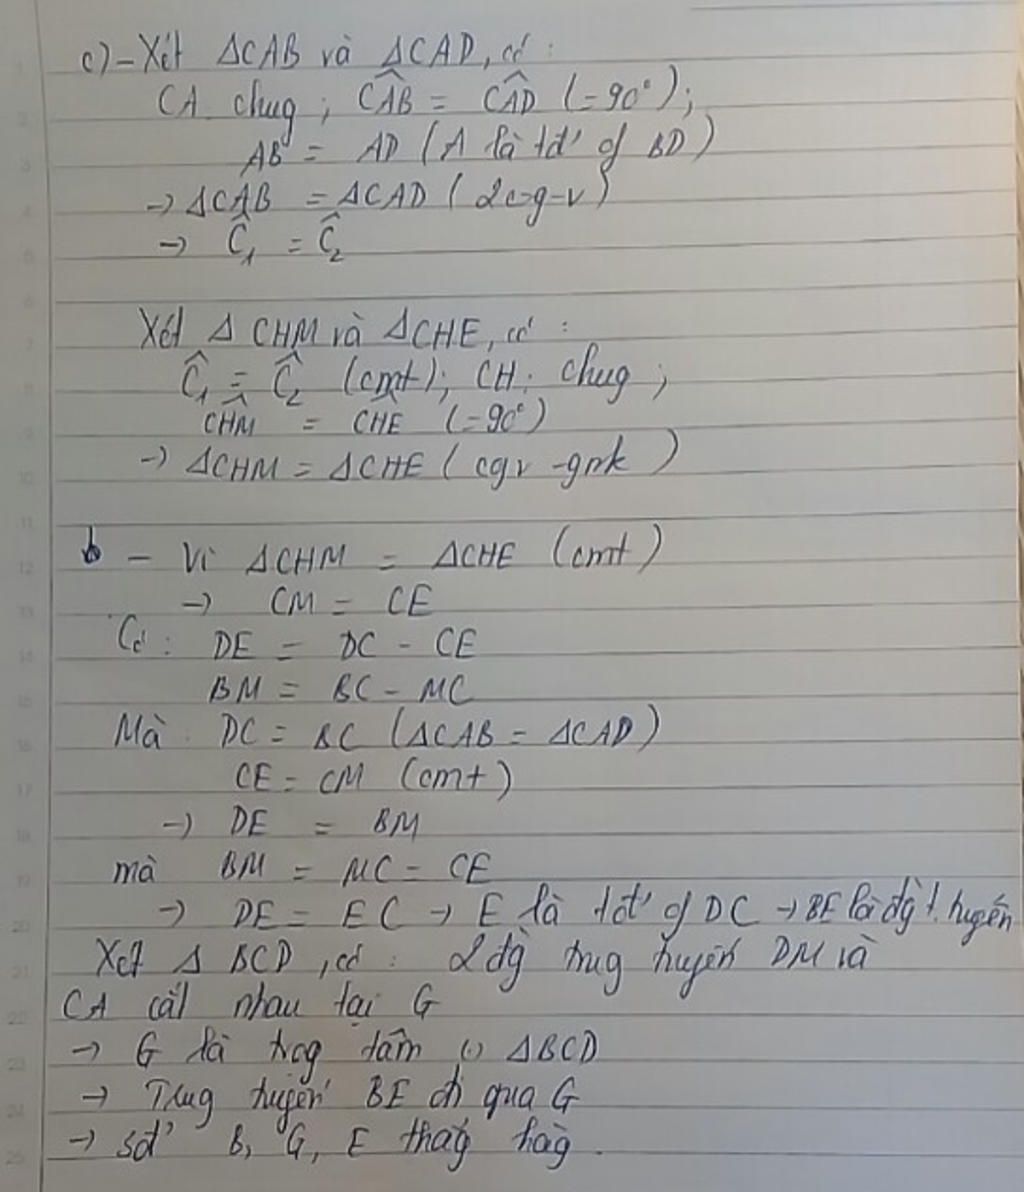 c) - Xét ΔCAB và ΔCAD, có:
CA chug; CAB̂ = CAD̂ (= 90°);
AB = AD (A là tđ' of BD)
→ ΔCAB = ΔCAD (2c-g-v)
→ Ĉ₁ = Ĉ₂
Xét Δ CHM và ΔCHE, có:
Ĉ₁ = Ĉ₂ (cmt); CH: chug;
CHM̂ = CHÊ (= 90°)
→ ΔCHM = ΔCHE (cgv - gnk)
- Vì ΔCHM = ΔCHE (cmt)
→ CM = CE
Có: DE = DC - CE
BM = BC - MC
Mà: DC = BC (ΔCAB = ΔCAD)
CE = CM (cmt)
→ DE = BM
mà BM = MC = CE
→ DE = EC → E là tđ' of DC → BE là đg t. tuyến
Xét Δ BCD, có: 2 đg trug tuyến DM và
CA cắt nhau tại G
→ G là trọg tâm ΔBCD
→ Trug tuyến BE đi qua G
→ 3đ' B, G, E thảg hàg.